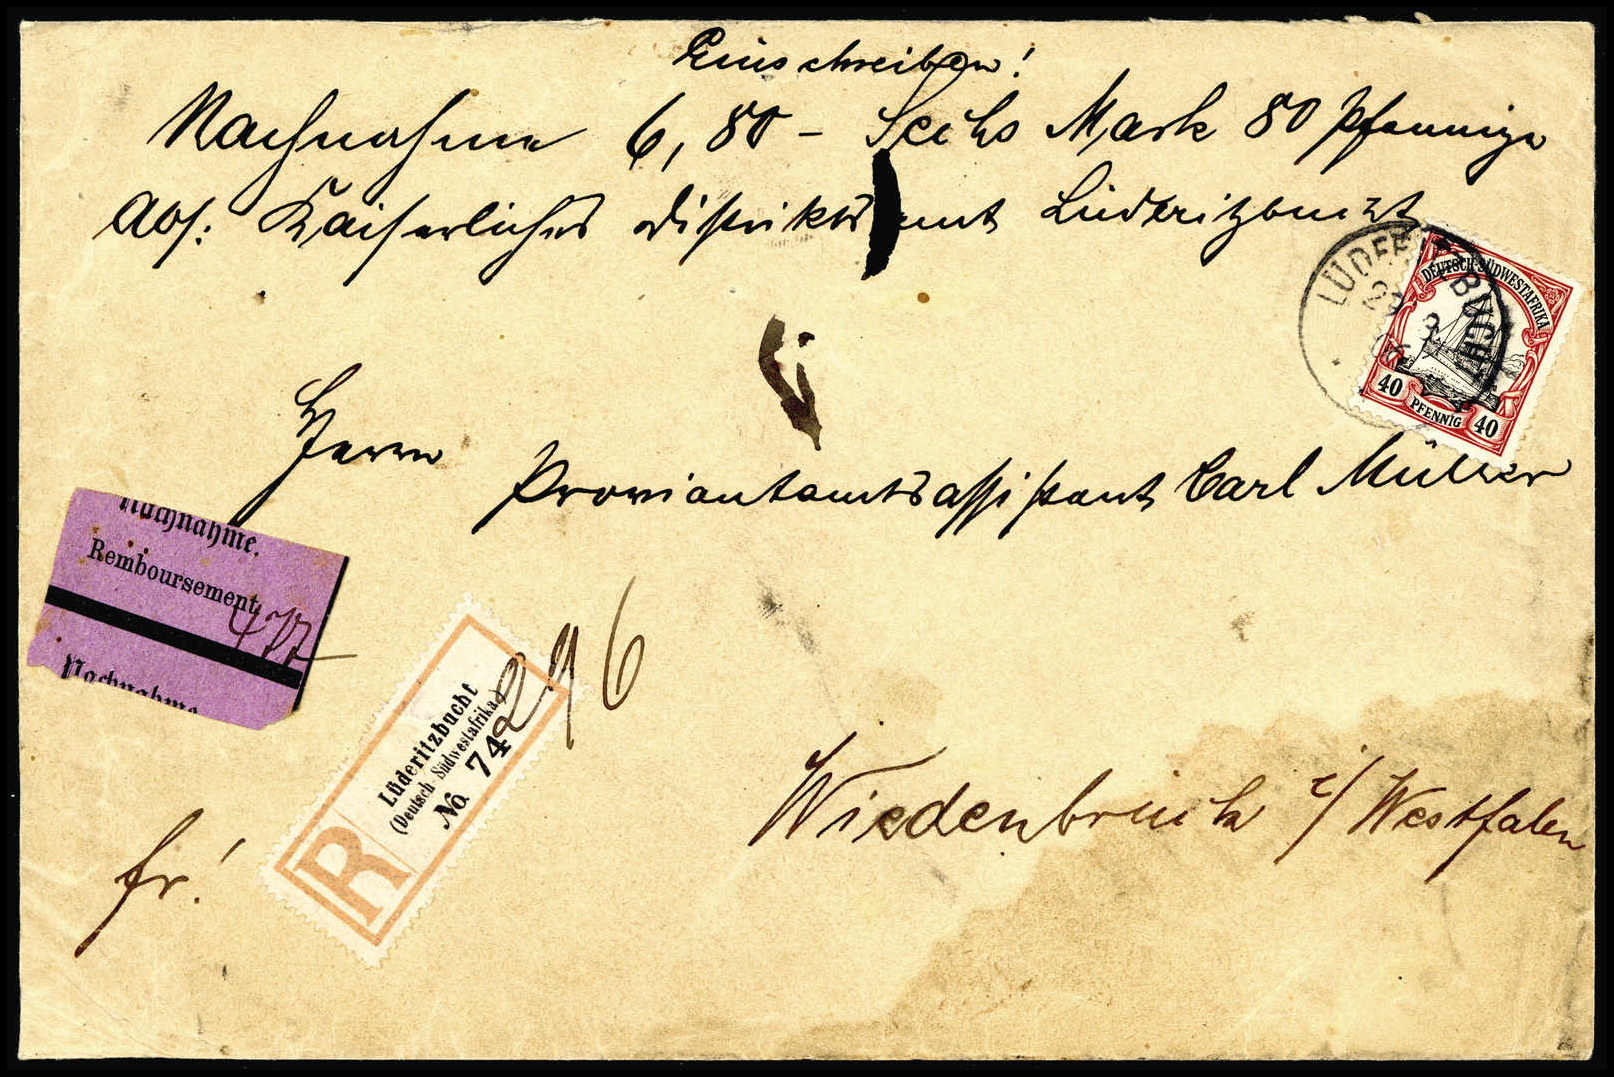 Einschreiben!
Nachnahme 6,80 – Sechs Mark 80 Pfennige
Abs: Kaiserliches Distriktsamt Lüderitzbucht
LÜDERITZBUCHT
29 3
DEUTSCH-SÜDWESTAFRIKA
40 PFENNIG 40
Herrn
Proviantamtsassistant Carl Müller
Nachnahme.
Remboursement
Nachnahme
Lüderitzbucht
(Deutsch-Südwestafrika)
No. 74
296
R
Wiedenbrück i/Westfalen
fr!